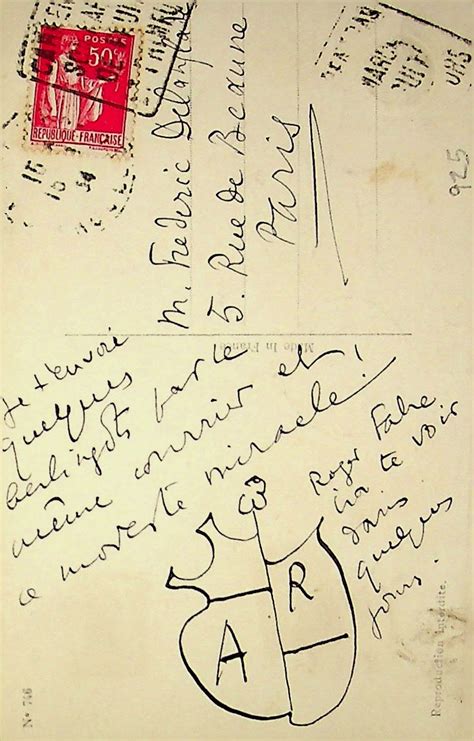 Je t'envoie
quelques
berlingots par le
même courrier et
ce modeste miracle!
A R
Roger Fabre
ira te voir
dans
quelques
jours.
M. Frederic
5. Rue de Beaune
Paris
POSTES
50c
REPUBLIQUE FRANÇAISE
15
Made In France
925
Reproduction interdite.
No 746